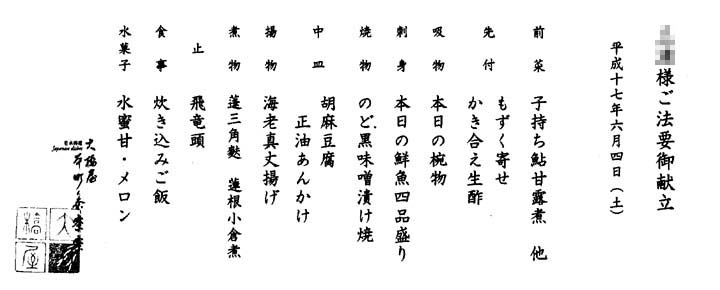 様ご法要御献立
平成十七年六月四日(土)
前菜 子持ち鮎甘露煮 他
先付 もずく寄せ
かき合え生酢
吸物 本日の椀物
刺身 本日の鮮魚四品盛り
焼物 のど黒味噌漬け焼
中皿 胡麻豆腐
正油あんかけ
揚物 海老真丈揚げ
煮物 蓬三角麩 蓮根小倉煮
止 飛竜頭
食事 炊き込みご飯
水菓子 水蜜甘・メロン
日本料理
Japanese dishes
大橋屋
大橋屋